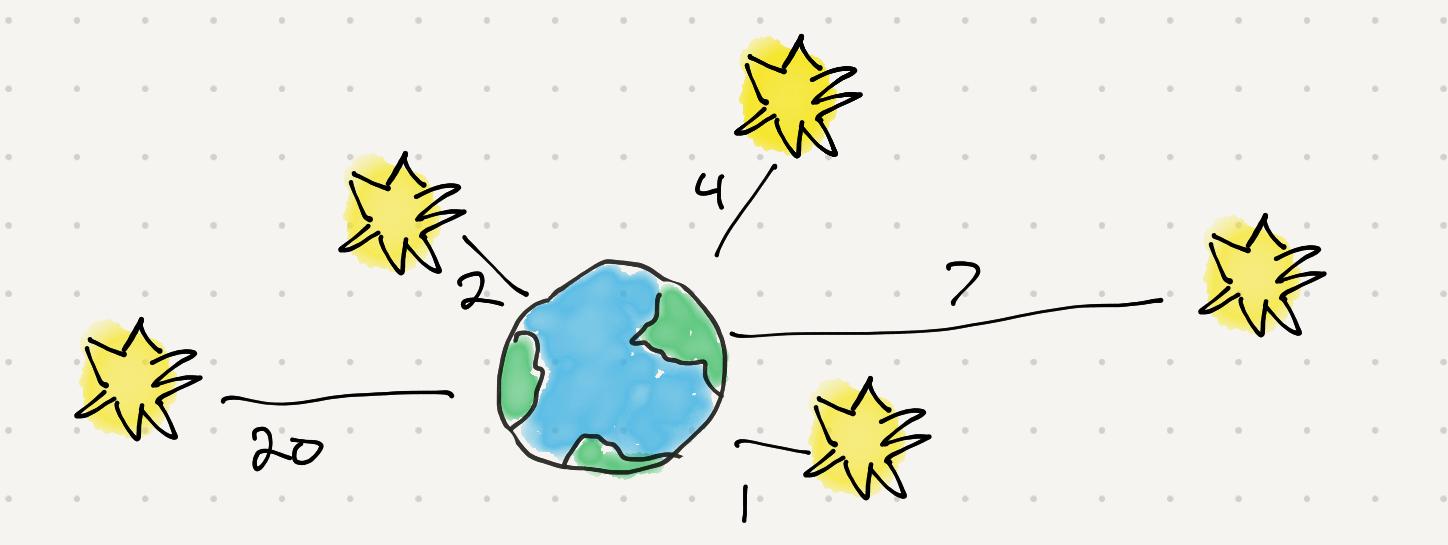 4
2
7
20
1